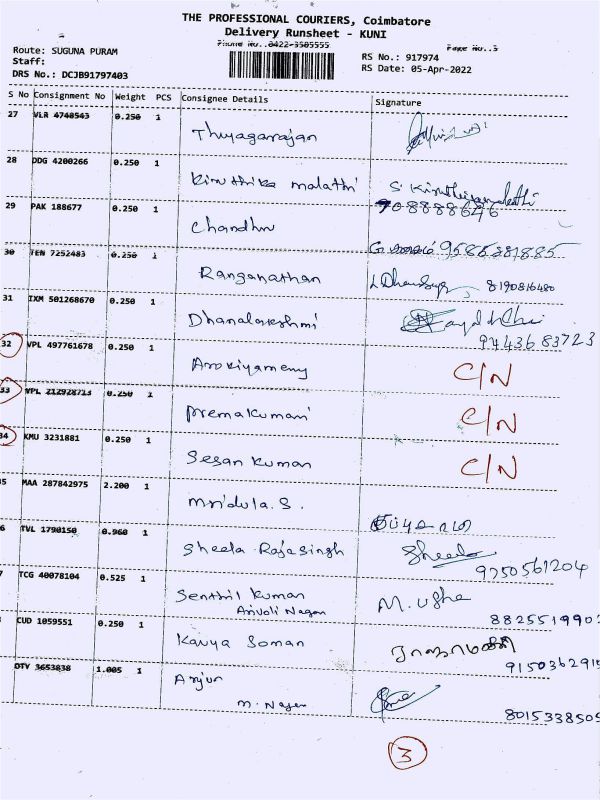 THE PROFESSIONAL COURIERS, Coimbatore
Delivery Runsheet - KUNI
Phone No..0422-3505555 Page No..3
Route: SUGUNA PURAM
Staff:
DRS No.: DCJB91797403
RS No.: 917974
RS Date: 05-Apr-2022
S No Consignment No Weight PCS Consignee Details Signature
27 VLR 4740543 0.250 1
Thiyagarajan
28 DDG 4200266 0.250 1
Kiruthika malathi
29 PAK 188677 0.250 1
Chandru 9585881885
30 TEN 7252483 0.250 1
Ranganathan 8190816480
31 IXM 501268670 0.250 1
Dhanalakshmi
9443683723
32 VPL 497761678 0.250 1
Arokiyameny C/N
33 VPL 212928713 0.250 1
Premakumari C/N
34 KMU 3231881 0.250 1
Sesan kumar C/N
5 MAA 287842975 2.200 1
Mridula.S.
6 TVL 1790150 0.960 1
Sheela Rajasingh Sheela
9750561204
7 TCG 40078104 0.525 1
Senthil Kumar M. Usha
Arivoli Nagar 882551990
CUD 1059551 0.250 1
Kavya Soman
9150362915
DTY 3653838 1.005 1
Arjun
M. Nagar 8015338505
3